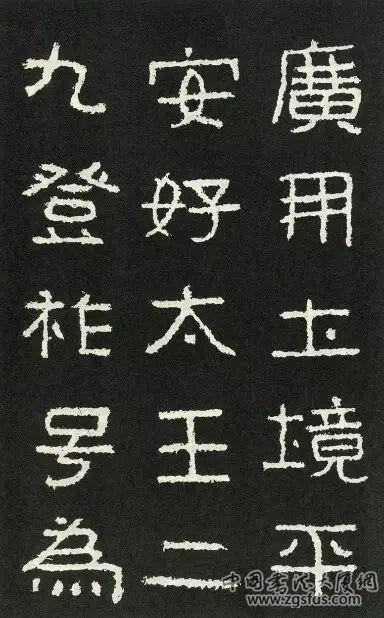 廣開土境平
安好太王二
九登祚号為
中国書法大厦網
www.zgsfds.com